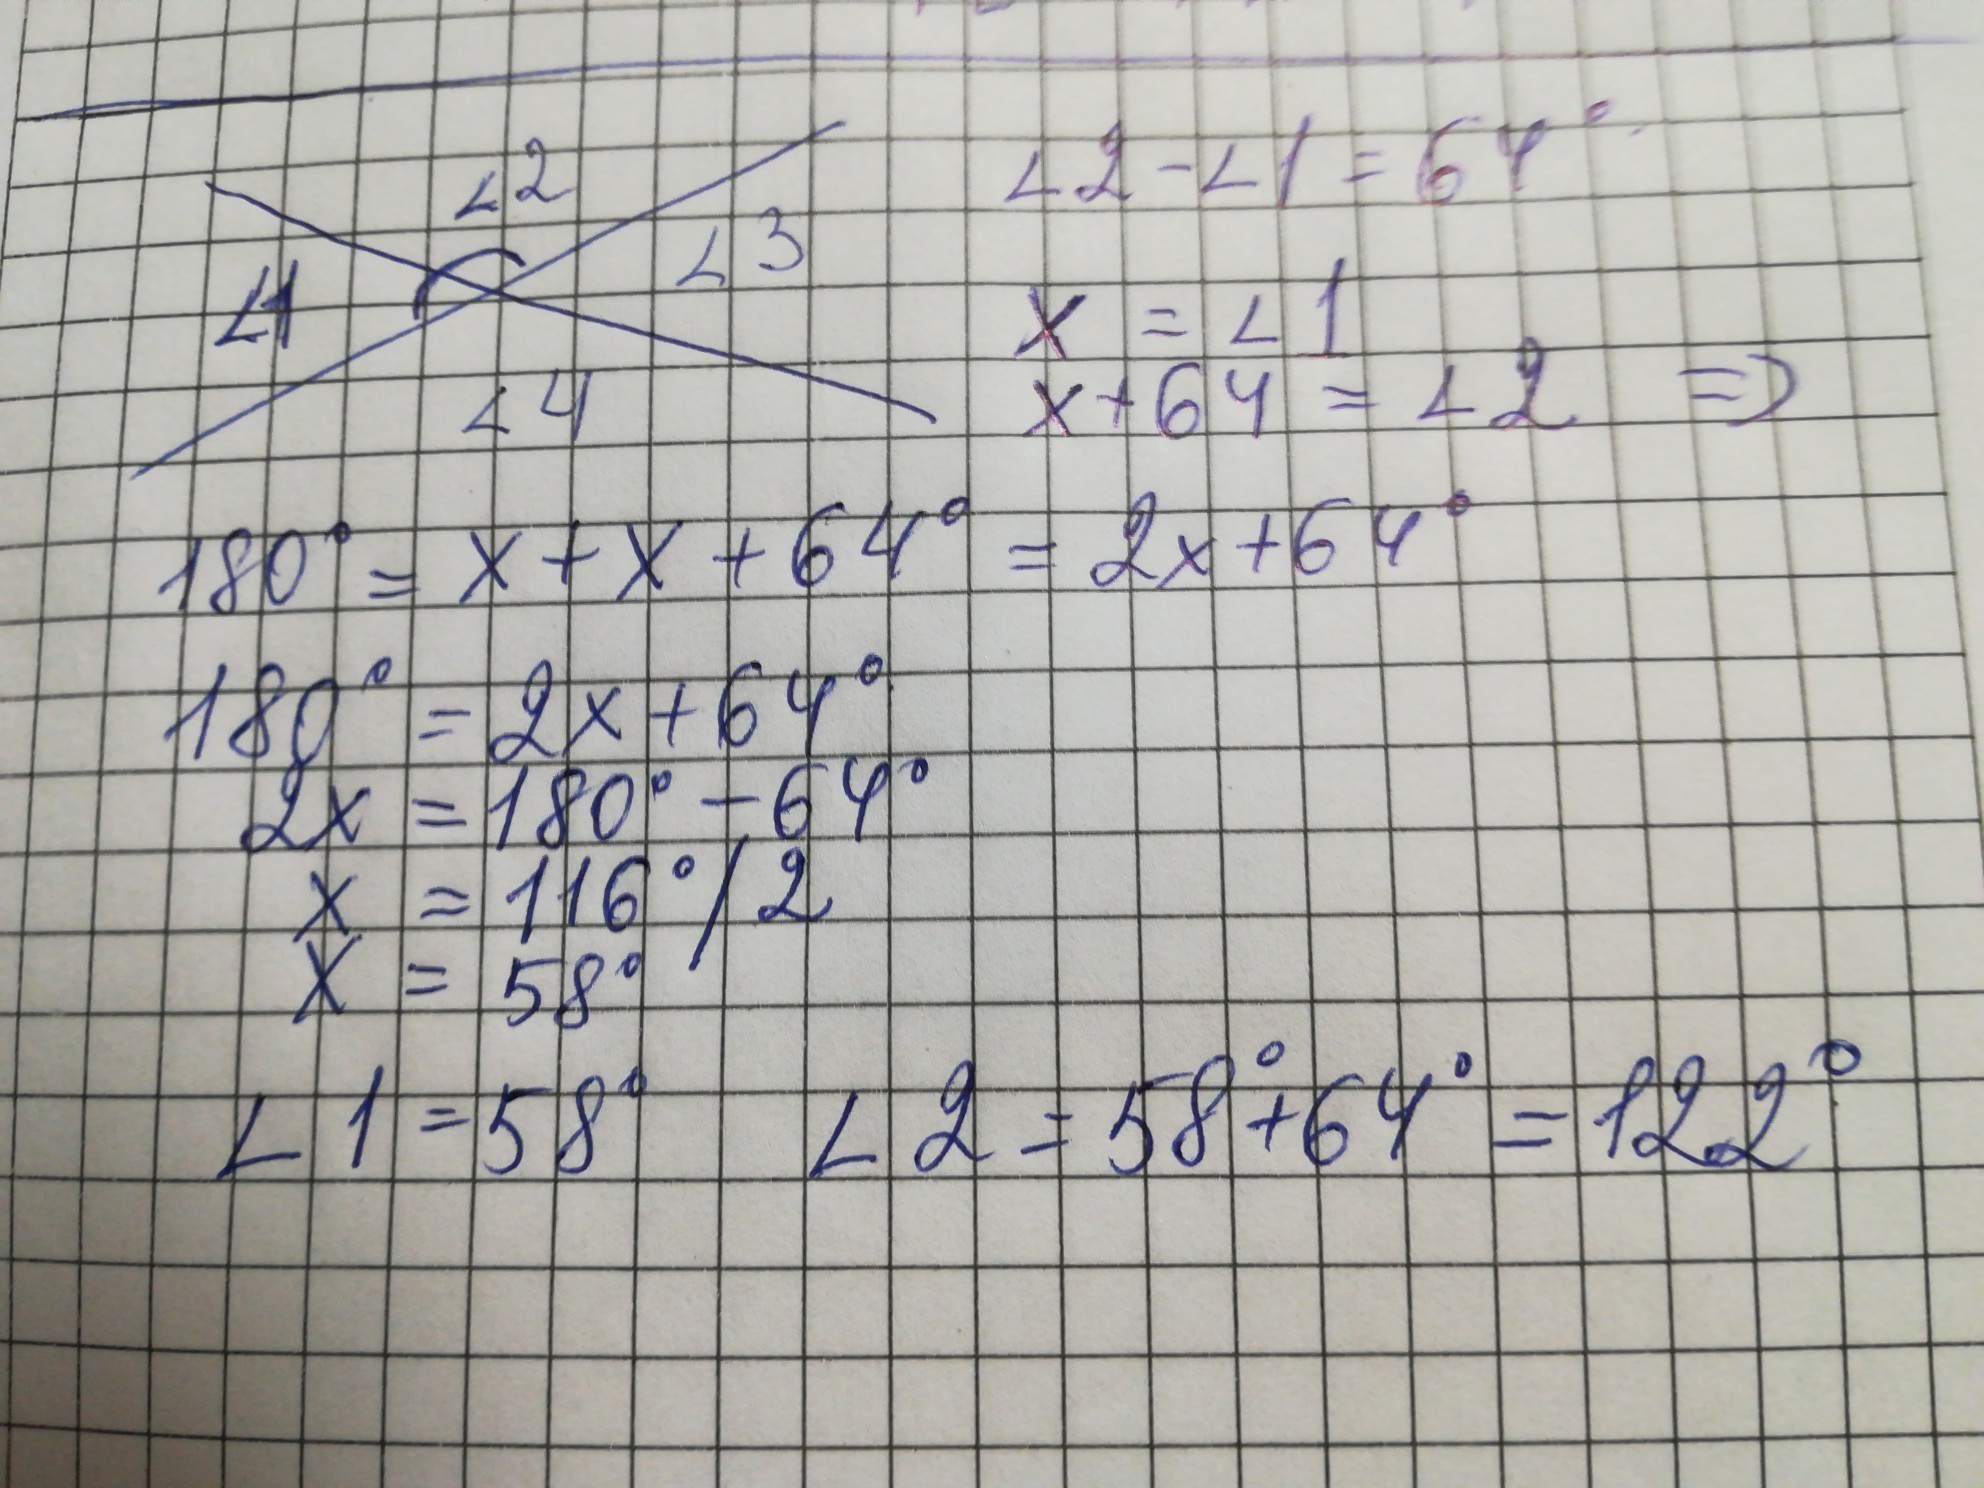 ∠2
∠1
∠3
∠4
∠2 - ∠1 = 64°
x = ∠1
x + 64 = ∠2 =>
180° = x + x + 64° = 2x + 64°
180° = 2x + 64°
2x = 180° - 64°
x = 116° / 2
x = 58°
∠1 = 58° ∠2 = 58° + 64° = 122°